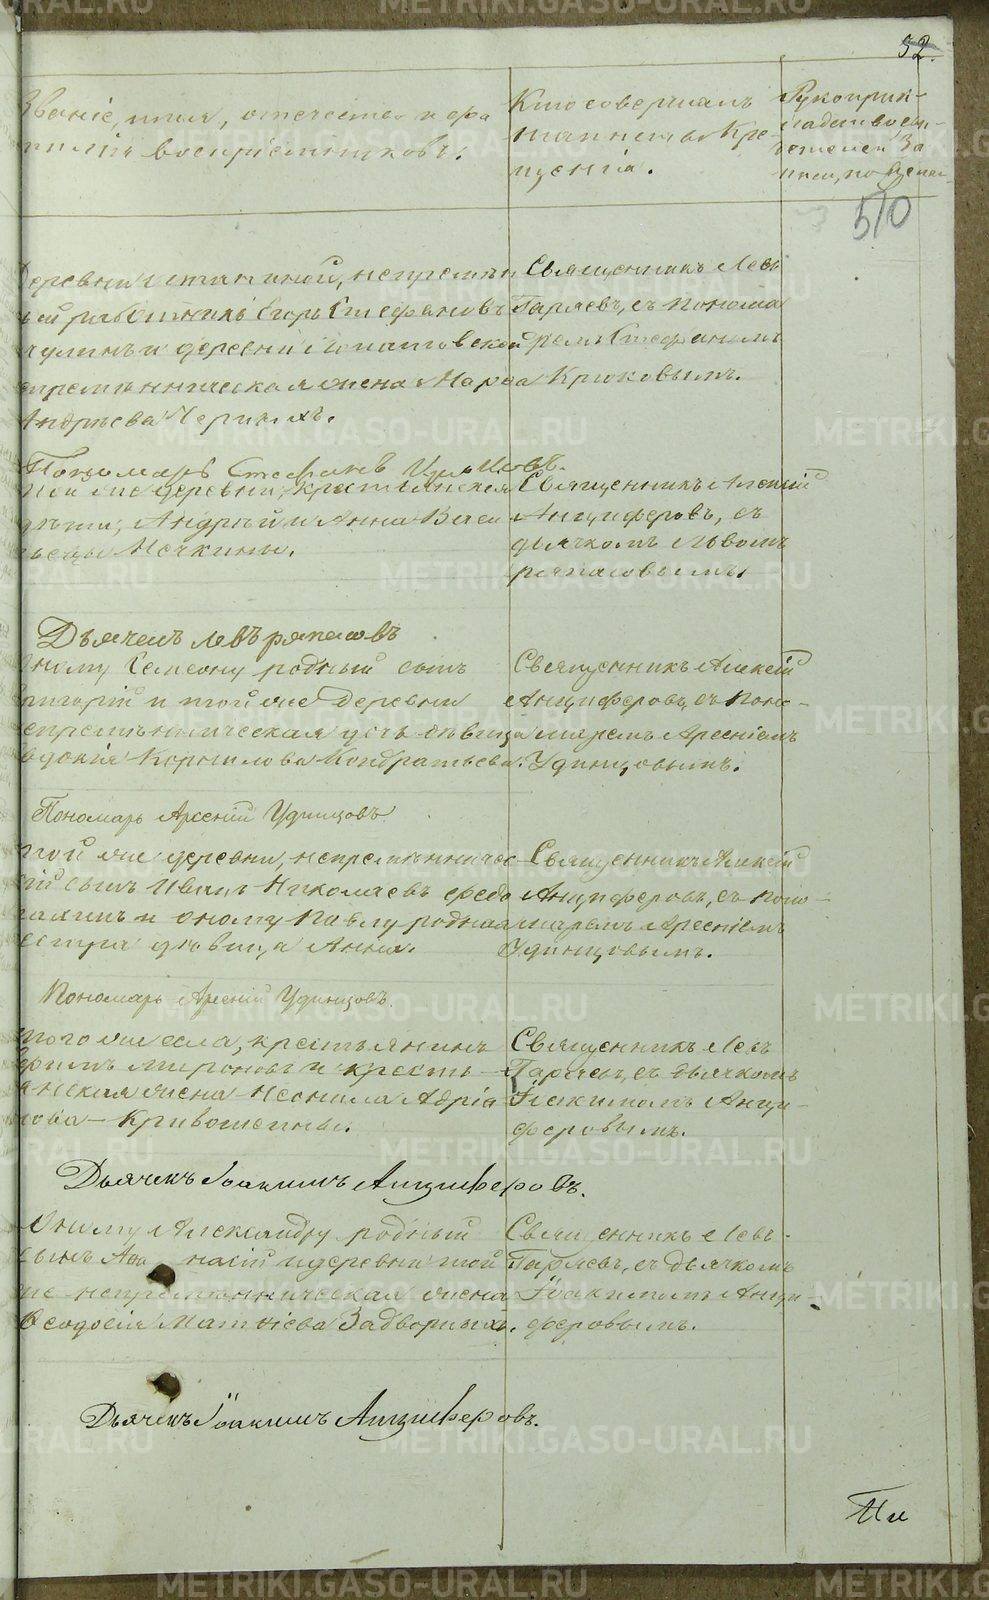 METRIKI.GASO-URAL.RU
32.
Званіе, имя, отечество и фа
миліи воспріемниковъ.
Кто совершалъ
таинство Кре
щенія.
Рукоприк-
ладство
510
непремѣн
работникъ Егоръ Стефановъ
и деревни
жена Марѳа
Андрѣева Черныхъ.
Священникъ Левъ
Гаряевъ, съ понома
ремъ Стефаномъ
Крюковымъ.
Пономарь Стефанъ
той же деревни, крестьянскія
дѣти, Андрей и Анна Васи
льевы Мечкины.
Священникъ Алексій
Анциферовъ, съ
дьячкомъ Львомъ
Дьячекъ Левъ
Оному Семеону родный сынъ
Григорій и той же деревни
непремѣнническая дочь дѣвица
Евдокія Корнилова Кондратьева.
Священникъ Алексій
Анциферовъ, съ поно-
маремъ Арсеніемъ
Удинцовымъ.
Пономарь Арсеній Удинцовъ
той же деревни, непремѣнничес
кій сынъ Иванъ Николаевъ
и оному Павлу родная
сестра дѣвица Анна.
Священникъ Алексій
Анциферовъ, съ поно-
маремъ Арсеніемъ
Удинцовымъ.
Пономарь Арсеній Удинцовъ.
того же села, крестьянинъ
Мироновъ и кресть-
янская жена Неонила Адріа
нова Кривошеины.
Священникъ Левъ
Гаряевъ, съ дьячкомъ
Іоакимомъ Анци-
феровымъ.
Дьячекъ Іоакимъ Анциферовъ.
Оному Александру родный
сынъ Аѳанасій и деревни той
же непремѣнническая жена
Ѳеодосія Матвіева Задворныхъ.
Священникъ Левъ
Гаряевъ, съ дьячкомъ
Іоакимомъ Анци-
феровымъ.
Дьячекъ Іоакимъ Анциферовъ.